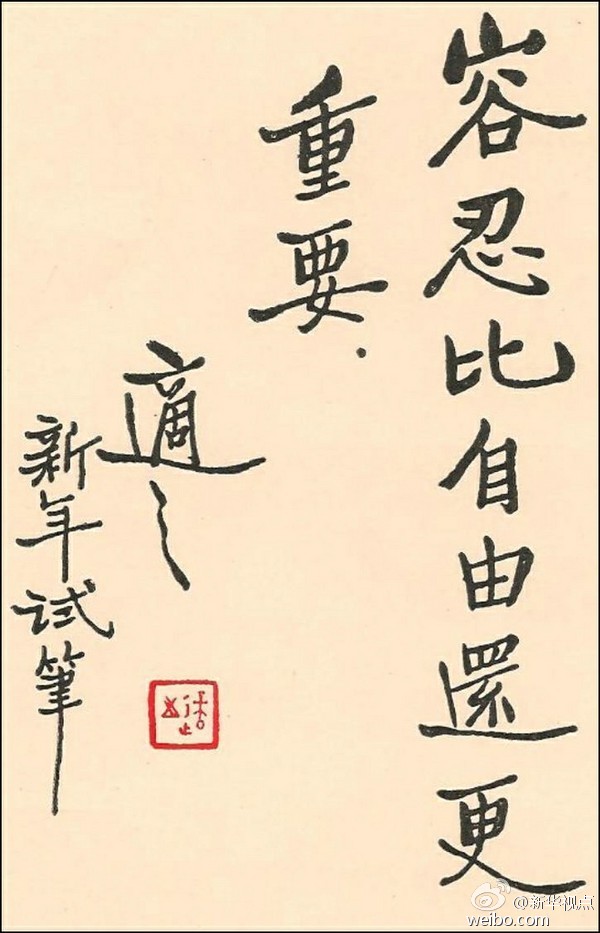 容忍比自由還更
重要.
適之
新年试筆
@新华视点
weibo.com